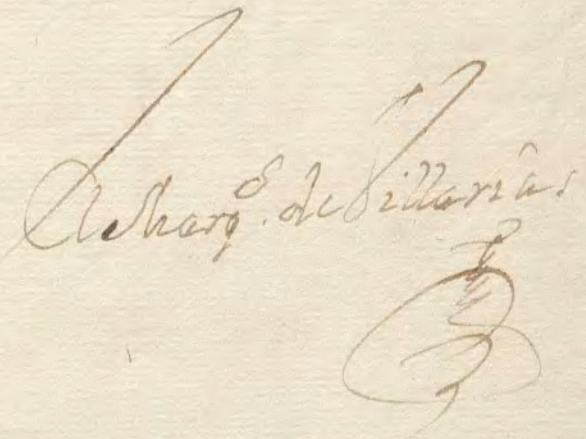 El Marq.s de Villarías